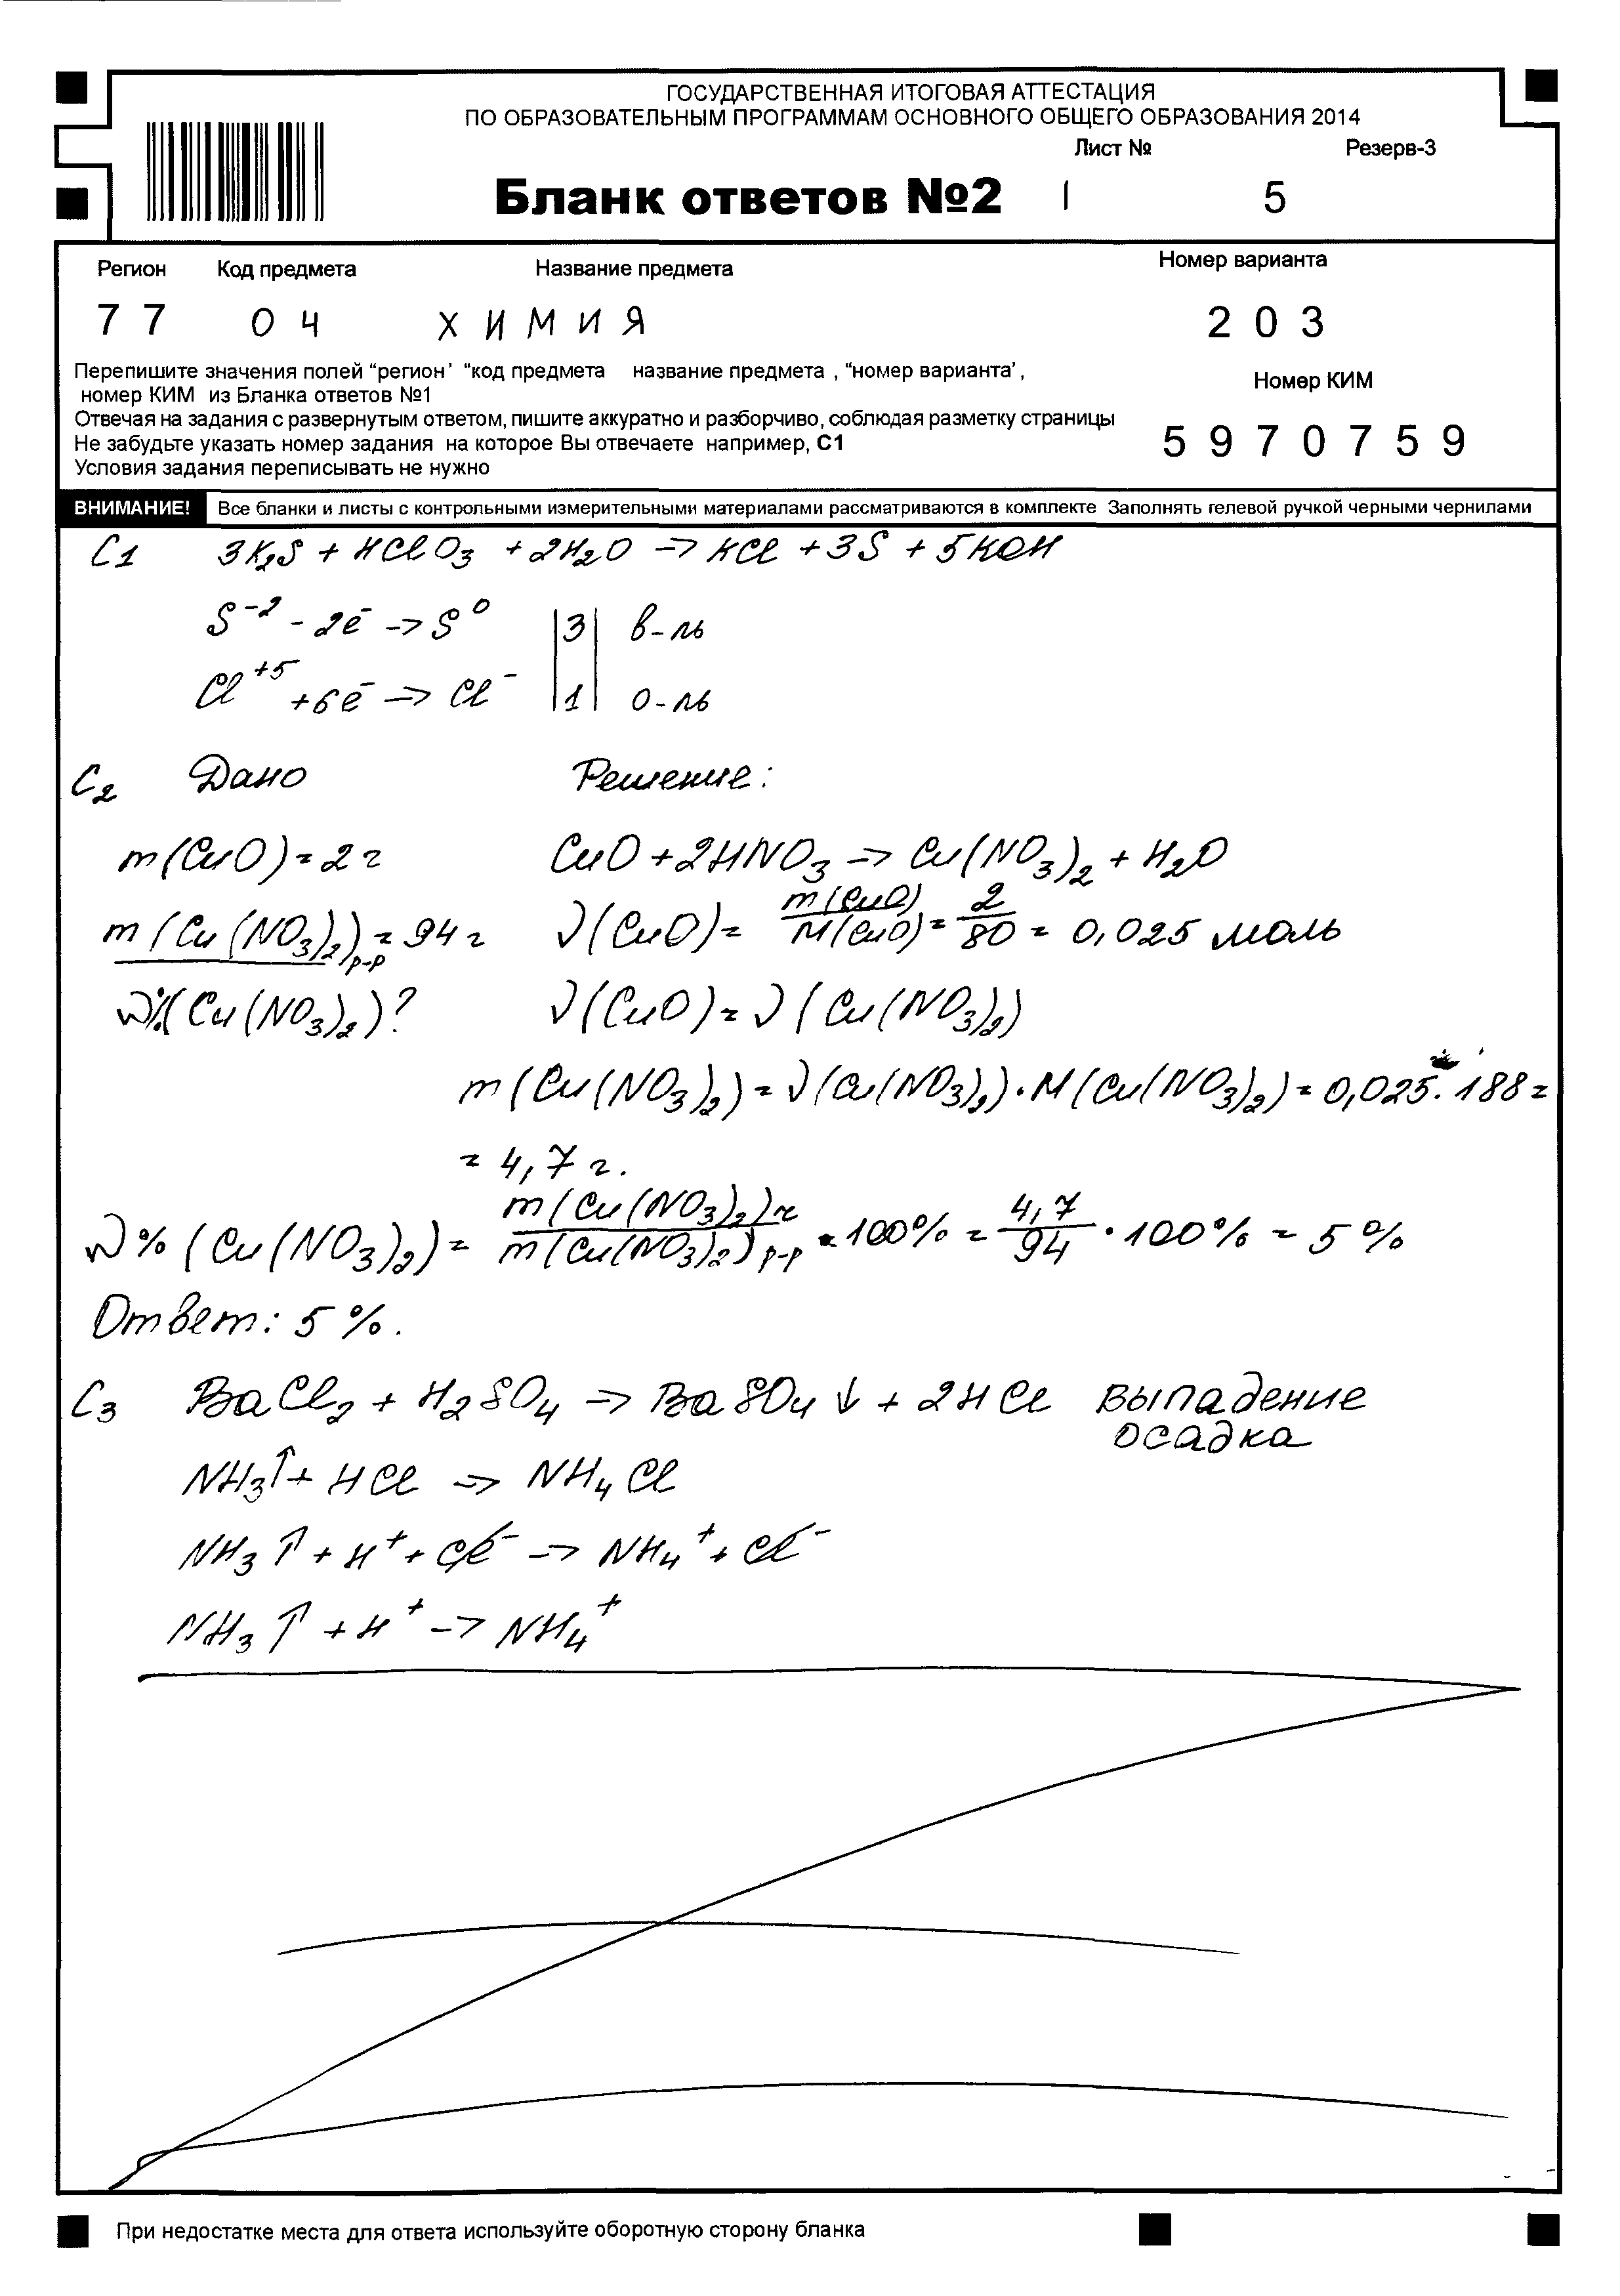 ГОСУДАРСТВЕННАЯ ИТОГОВАЯ АТТЕСТАЦИЯ
ПО ОБРАЗОВАТЕЛЬНЫМ ПРОГРАММАМ ОСНОВНОГО ОБЩЕГО ОБРАЗОВАНИЯ 2014
Лист № Резерв-3
Бланк ответов №2 | 5
Регион Код предмета Название предмета Номер варианта
7 7 0 4 Х И М И Я 2 0 3
Перепишите значения полей “регион’ “код предмета название предмета , “номер варианта’,
номер КИМ из Бланка ответов №1
Номер КИМ
Отвечая на задания с развернутым ответом, пишите аккуратно и разборчиво, соблюдая разметку страницы
Не забудьте указать номер задания на которое Вы отвечаете например, С1
5 9 7 0 7 5 9
Условия задания переписывать не нужно
ВНИМАНИЕ! Все бланки и листы с контрольными измерительными материалами рассматриваются в комплекте Заполнять гелевой ручкой черными чернилами
C1 3K₂S + KClO₃ + 2H₂O → KCl + 3S + 5KOH
S⁻² - 2ē → S⁰ |3| в-ль
Cl⁺⁵ + 6ē → Cl⁻ |1| о-ль
C₂ Дано Решение:
m(CuO) = 2 г CuO + 2HNO₃ → Cu(NO₃)₂ + H₂O
m(Cu(NO₃)₂)р-р = 94 г ν(CuO) = m(CuO)/M(CuO) = 2/80 = 0,025 моль
ω%(Cu(NO₃)₂)? ν(CuO) = ν(Cu(NO₃)₂)
m(Cu(NO₃)₂) = ν(Cu(NO₃)₂) · M(Cu(NO₃)₂) = 0,025 · 188 =
= 4,7 г.
ω%(Cu(NO₃)₂) = m(Cu(NO₃)₂)ч/m(Cu(NO₃)₂)р-р · 100% = 4,7/94 · 100% = 5%
Ответ: 5%.
C₃ BaCl₂ + H₂SO₄ → BaSO₄↓ + 2HCl выпадение
осадка
NH₃↑ + HCl → NH₄Cl
NH₃↑ + H⁺ + Cl⁻ → NH₄⁺ + Cl⁻
NH₃↑ + H⁺ → NH₄⁺
При недостатке места для ответа используйте оборотную сторону бланка